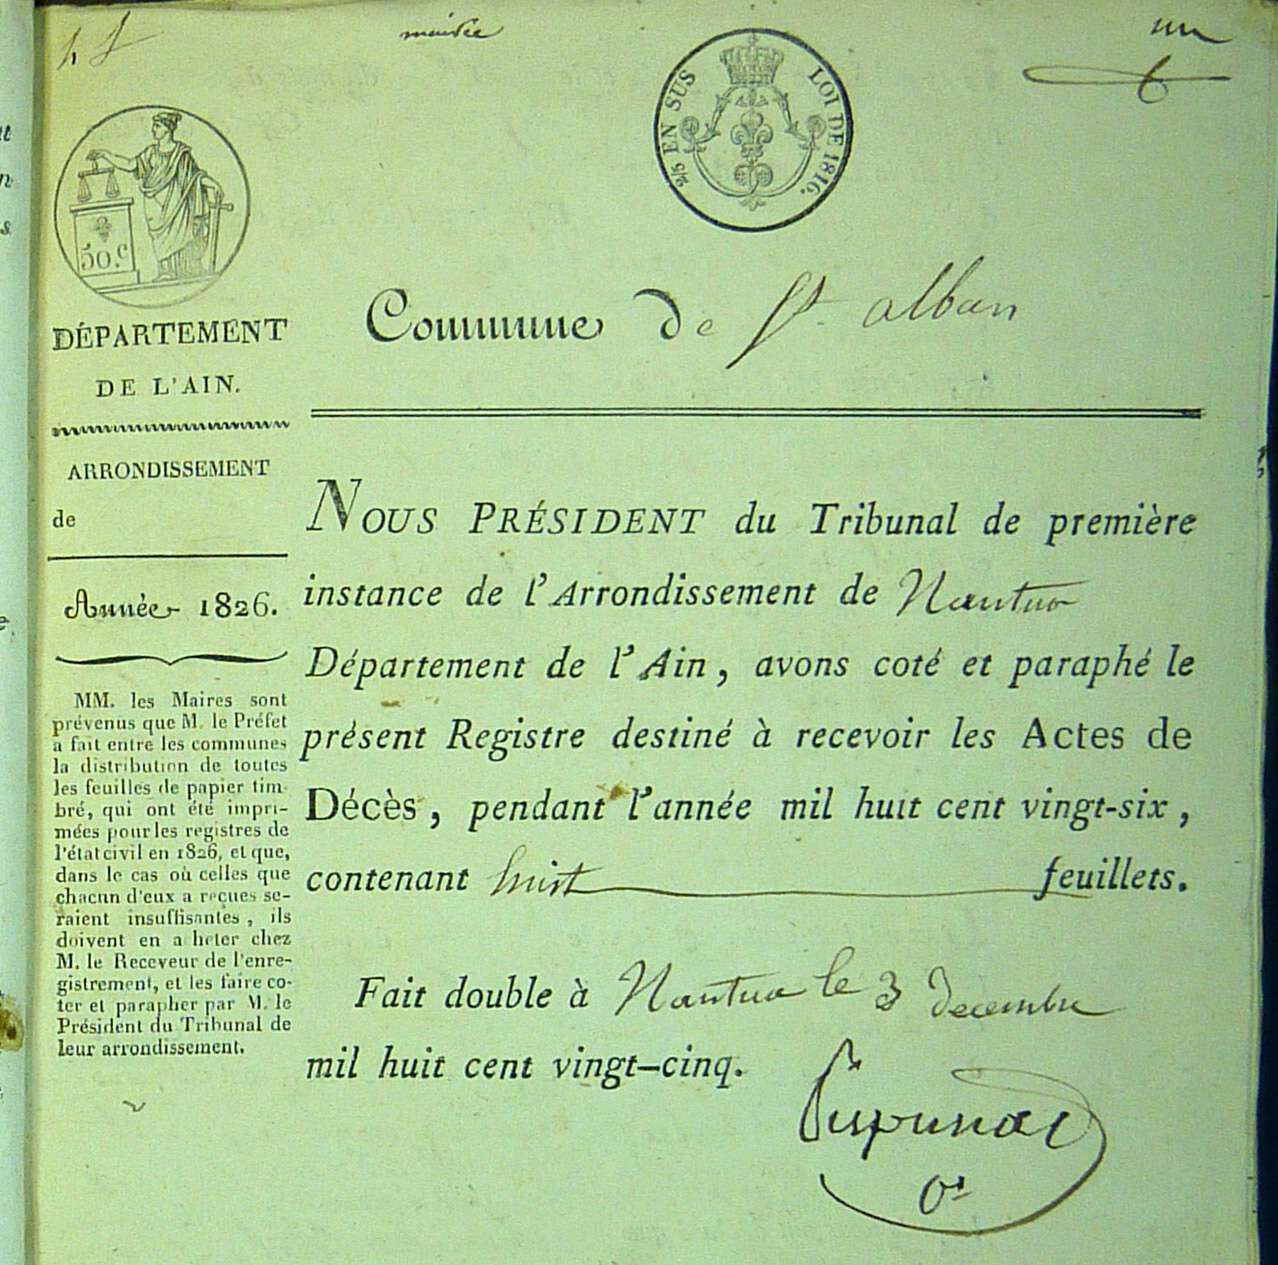 mairie
un
2/5 EN SUS
LOI DE 1816.
50.c
DÉPARTEMENT
DE L'AIN.
ARRONDISSEMENT
de
Année 1826.
MM. les Maires sont
prévenus que M. le Préfet
a fait entre les communes
la distribution de toutes
les feuilles de papier tim
bré, qui ont été impri-
mées pour les registres de
l'état civil en 1826, et que,
dans le cas où celles que
chacun d'eux a reçues se-
raient insuffisantes, ils
doivent en a heter chez
M. le Receveur de l'enre-
gistrement, et les faire co-
ter et parapher par M. le
Président du Tribunal de
leur arrondissement.
Commune de St. alban
NOUS PRÉSIDENT du Tribunal de première
instance de l'Arrondissement de Nantua
Département de l'Ain, avons coté et paraphé le
présent Registre destiné à recevoir les Actes de
Décès, pendant l'année mil huit cent vingt-six,
contenant huit feuillets.
Fait double à Nantua le 3 Decembre
mil huit cent vingt-cinq.